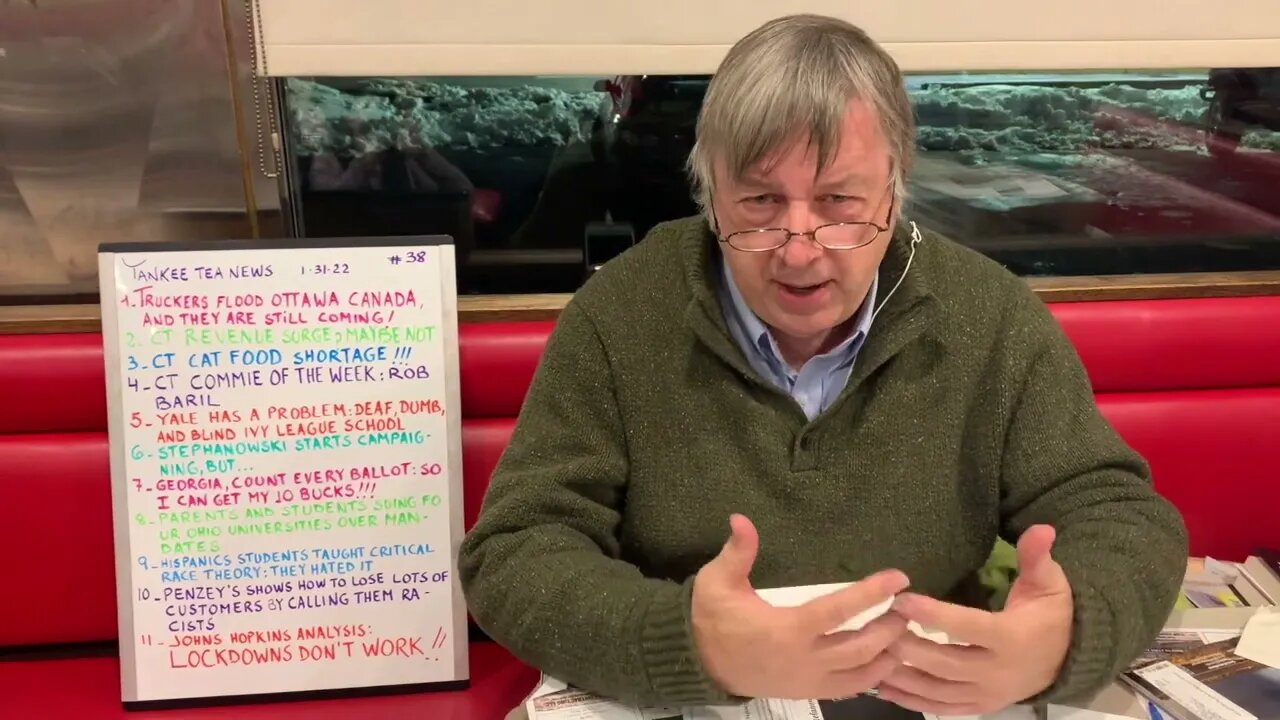 YANKEE TEA NEWS 1·31·22 #38
1. TRUCKERS FLOOD OTTAWA CANADA,
AND THEY ARE STILL COMING!
2- CT REVENUE SURGE; MAYBE NOT
3- CT CAT FOOD SHORTAGE!!!
4- CT COMMIE OF THE WEEK: ROB
BARIL
5- YALE HAS A PROBLEM: DEAF, DUMB,
AND BLIND IVY LEAGUE SCHOOL
6- STEPHANOWSKI STARTS CAMPAIG-
NING, BUT...
7- GEORGIA, COUNT EVERY BALLOT: SO
I CAN GET MY 10 BUCKS!!!
8- PARENTS AND STUDENTS SUING FO
UR OHIO UNIVERSITIES OVER MAN-
DATES
9- HISPANICS STUDENTS TAUGHT CRITICAL
RACE THEORY: THEY HATED IT
10- PENZEY'S SHOWS HOW TO LOSE LOTS OF
CUSTOMERS BY CALLING THEM RA-
CISTS
11- JOHNS HOPKINS ANALYSIS:
LOCKDOWNS DON'T WORK!!